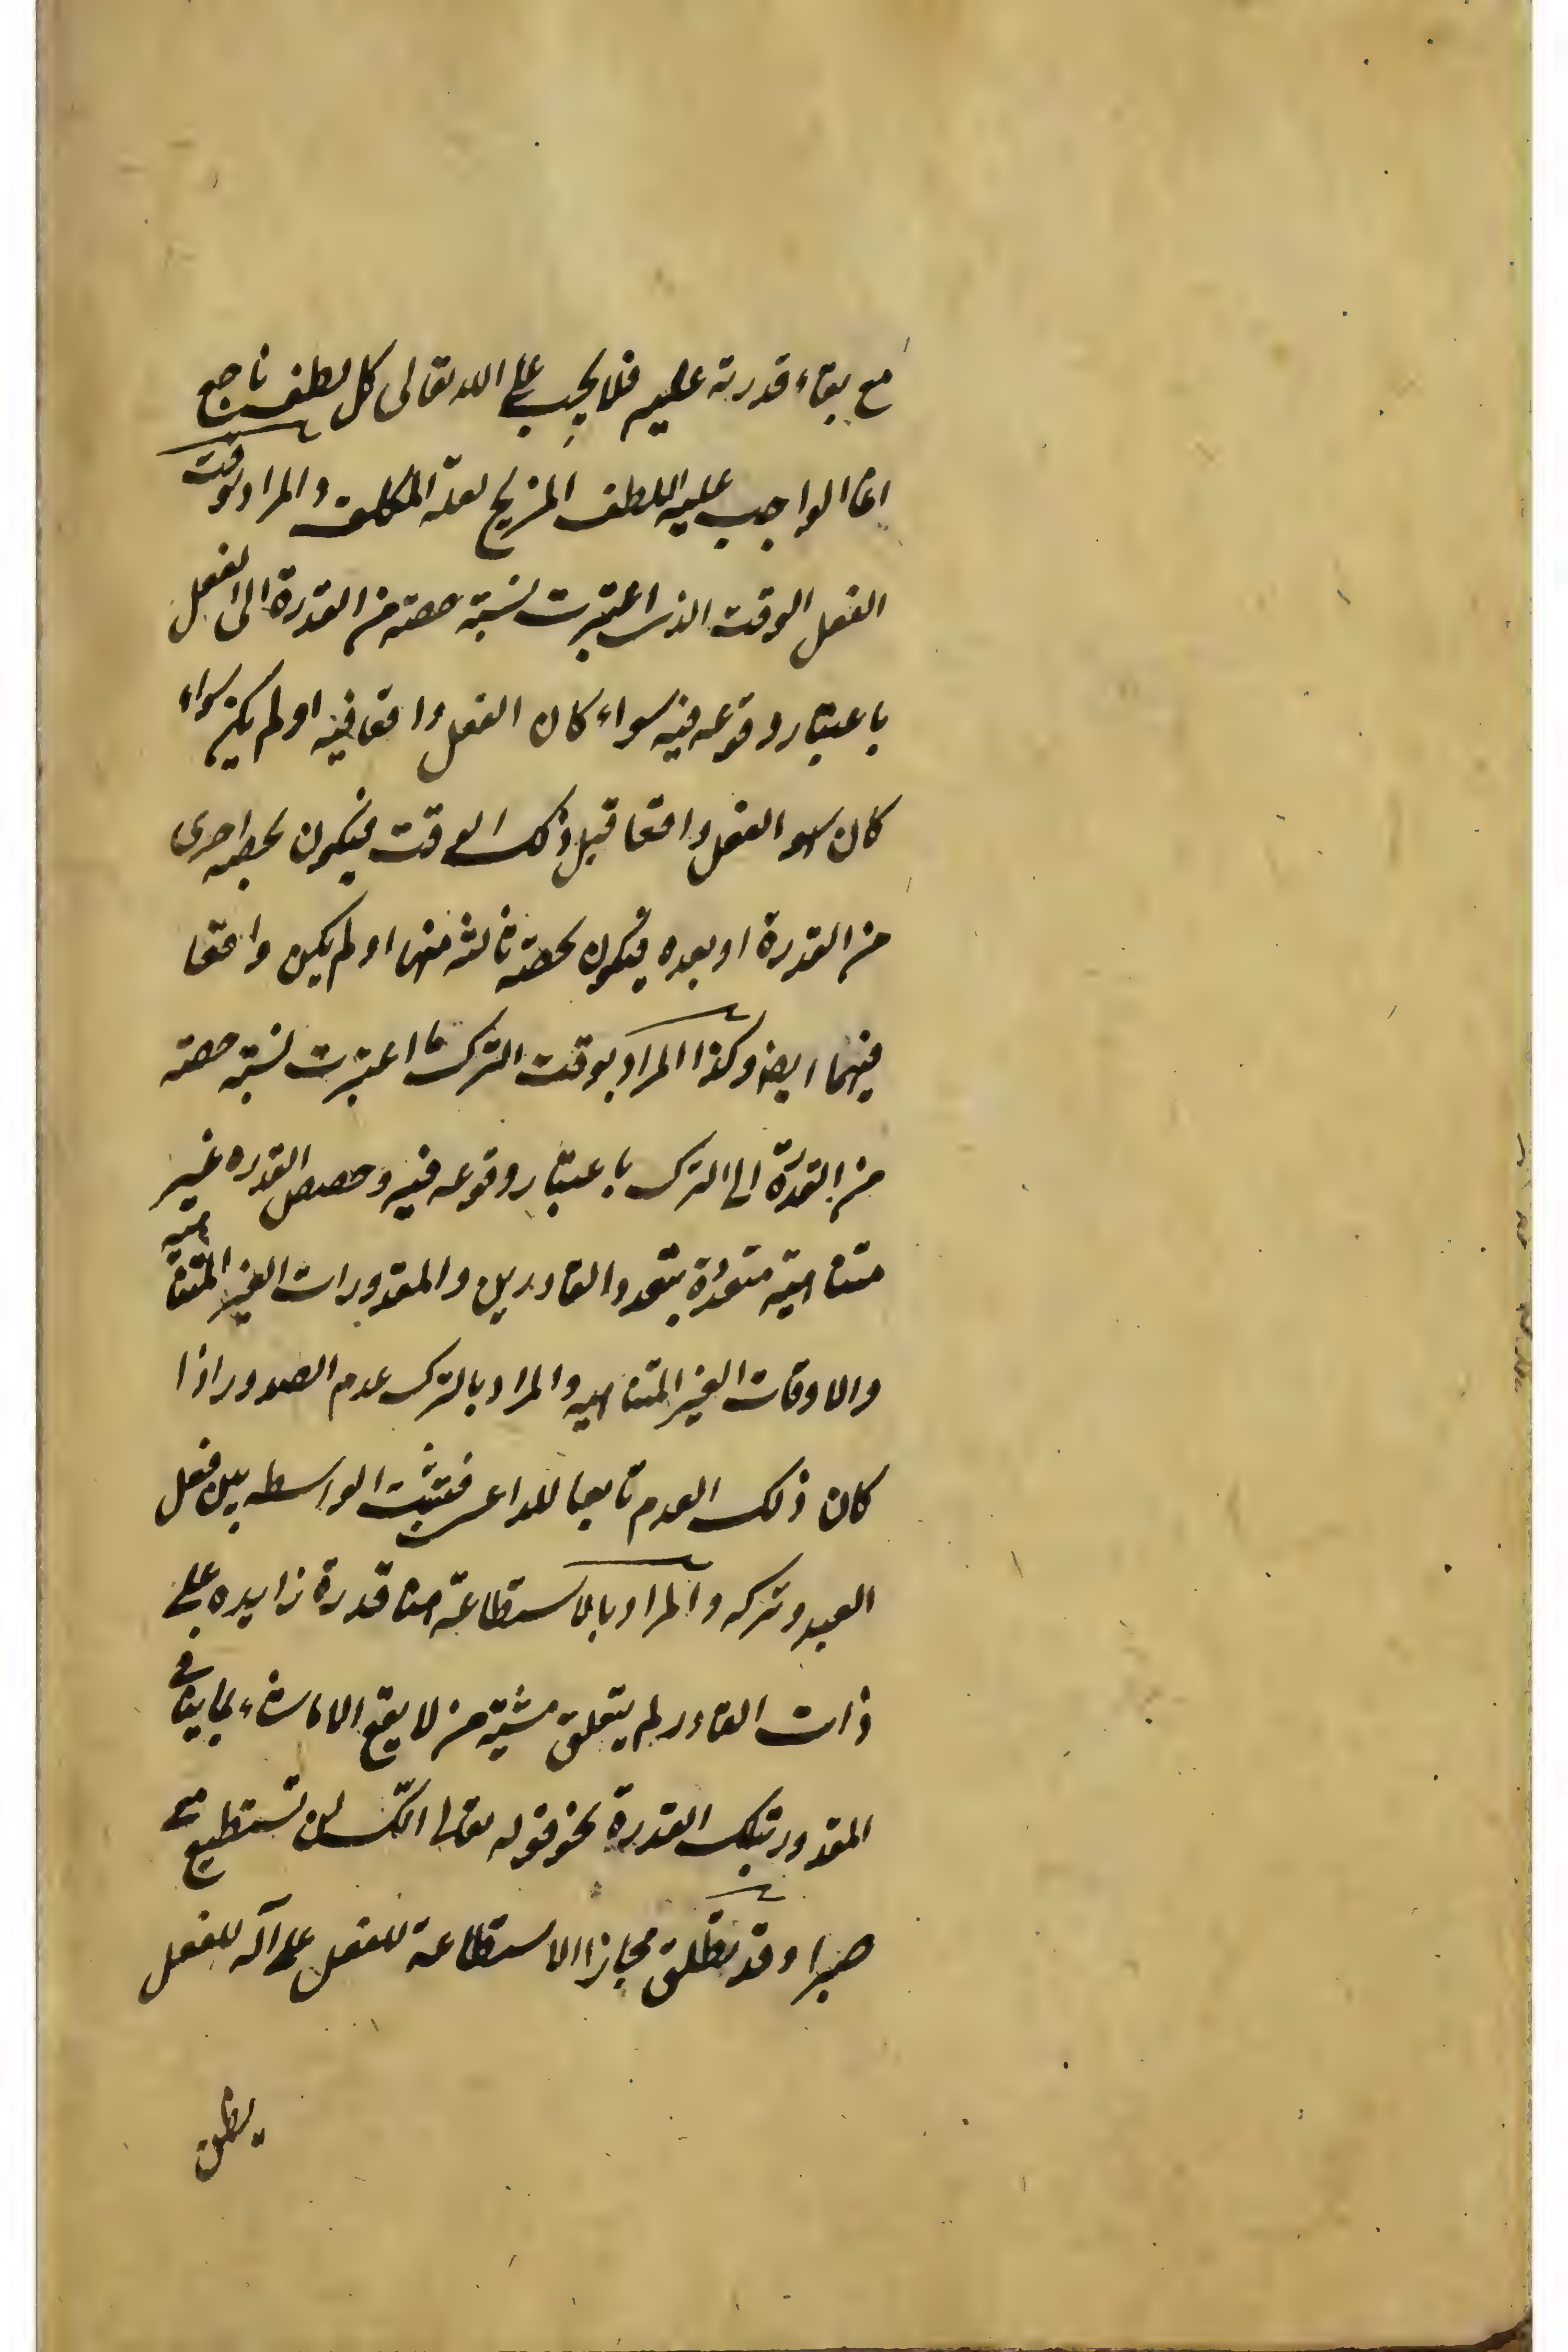 مع بقاء قدرته عليه فلا يجب على الله تعالى كل لطف ناجع
انما الواجب عليه اللطف المزيح لعلة المكلف والمراد بوقت
الفعل الوقت الذى اعتبرت نسبة حصة من القدرة الى الفعل
باعتبار وقوعه فيه سواء كان الفعل واقعا فيه او لم يكن سواء
كان الفعل واقعا قبل ذلك الوقت فيكون بحصة اخرى
من القدرة او بعده فيكون بحصة ثالثه منها او لم يكن واقعا
فيهما ايضا وكذا المراد بوقت الترك ما اعتبرت نسبة حصة
من القدرة الى الترك باعتبار وقوعه فيه وحصص القدره غير
متناهية متعددة بتعدد القادرين والمقدورات الغير المتناهية
والاوقات الغير المتناهيه والمراد بالترك عدم الصدور اذا
كان ذلك العدم تابعا للداعى فتثبت الواسطه بين فعل
العبد وتركه والمراد بالاستطاعة هنا قدرة زايده على
ذات القادر لم يتعلق مشية من لا يقع الا ما شاء بما ينافى
المقدور بتلك القدرة نحو قوله تعالى انك لن تستطيع معى
صبرا وقد تطلق مجازا الاستطاعة للفعل على آلة للفعل
يظن